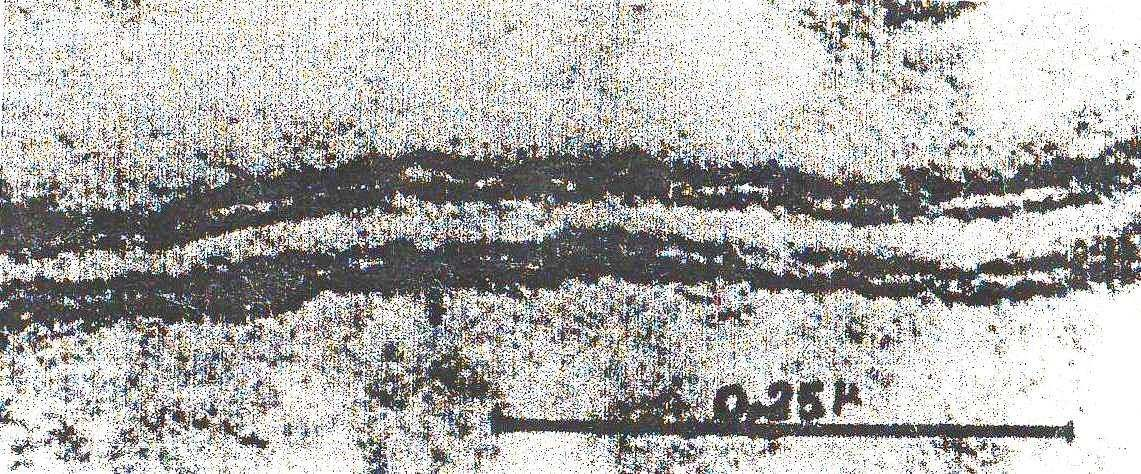 0.25µ